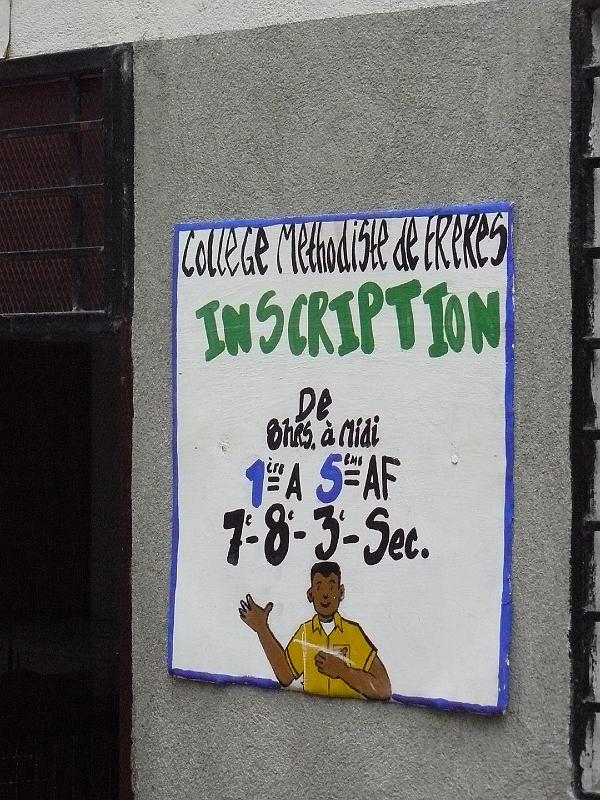 COLLEGE Methodiste de FRERES
INSCRIPTION
De
8hrs. à Midi
1ère A 5ème AF
7e- 8e- 3e- Sec.